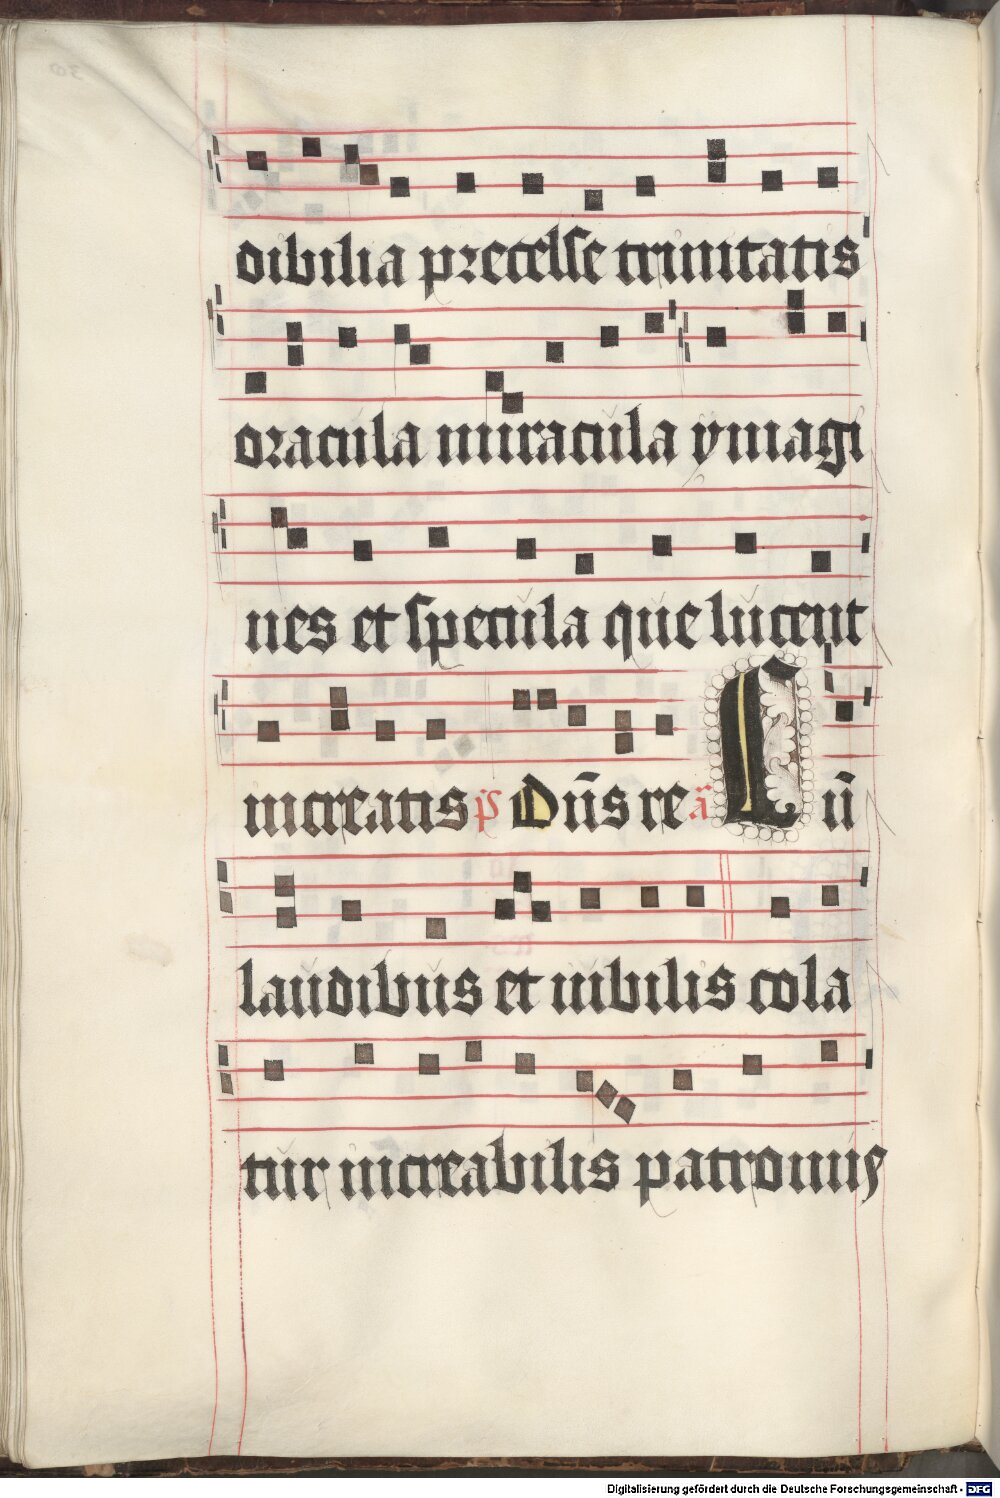 dibilia precelse trinitatis
oracula miracula ymagi
nes et specula que lucent
increatis ps Dn̄s re a L ū
laudibus et iubilis cola
tur increabilis patronus
Digitalisierung gefördert durch die Deutsche Forschungsgemeinschaft - DFG